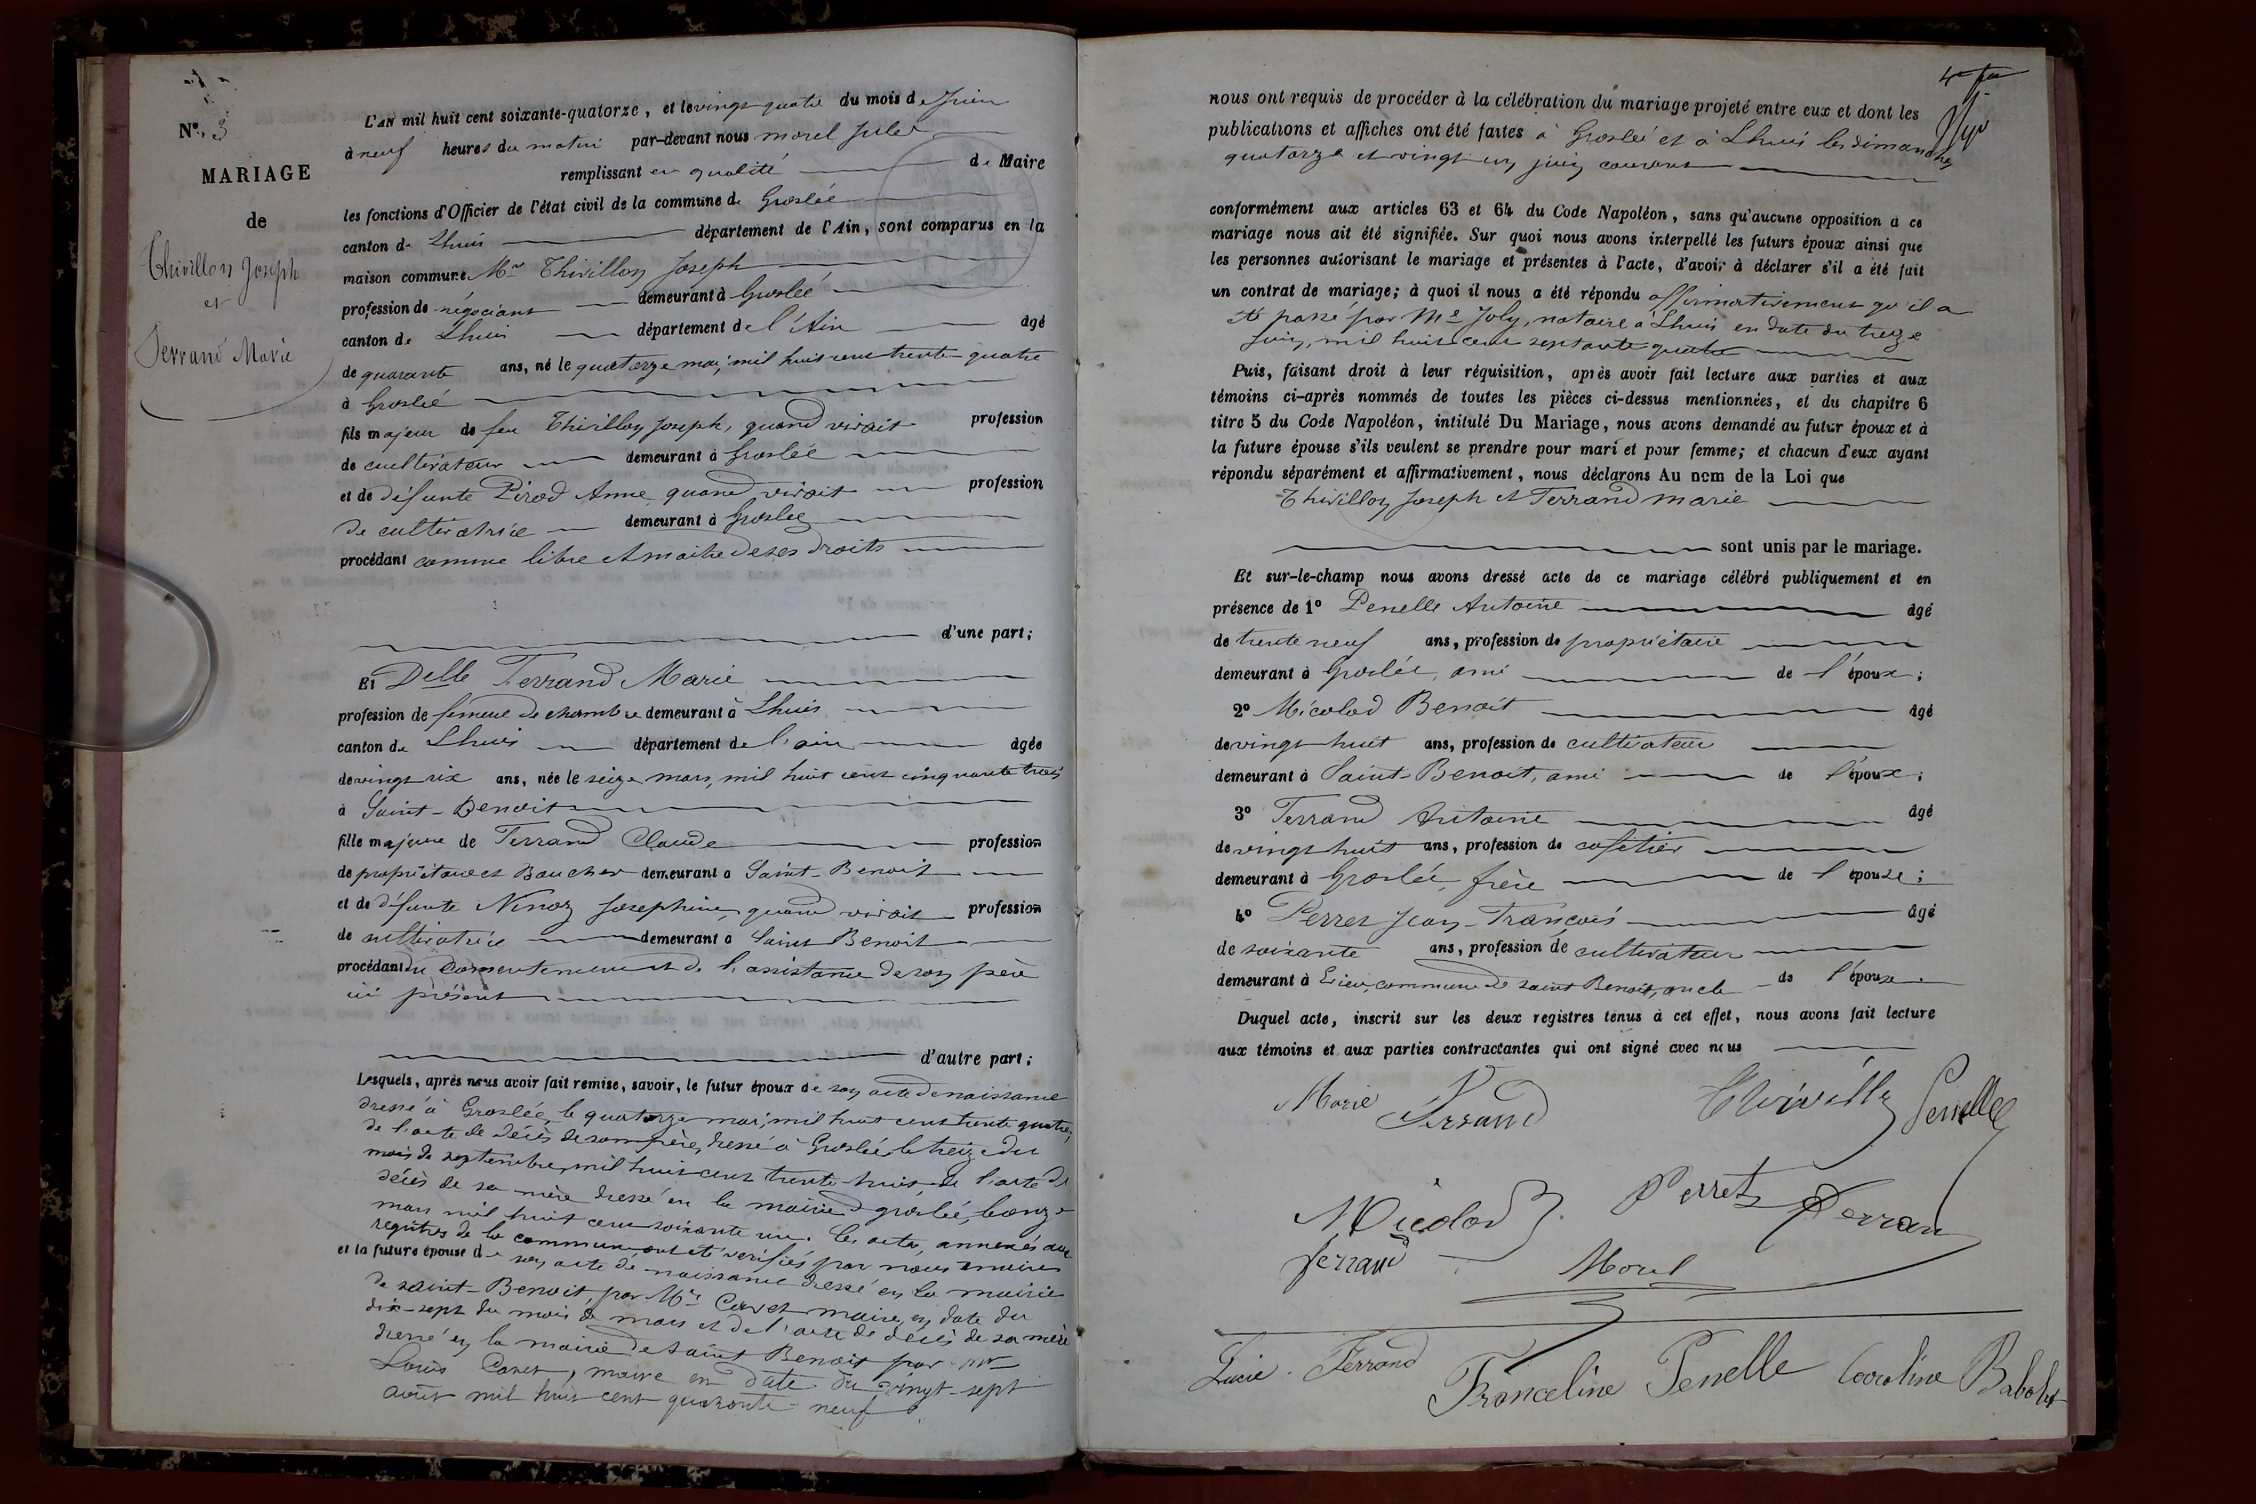 N° 3
MARIAGE
de
Thivillon Joseph
et
Ferrand Marie
L'AN mil huit cent soixante-quatorze, et le vingt quatre du mois de Juin
à neuf heures du matin par-devant nous Morel Jules
remplissant en qualité de Maire
les fonctions d'Officier de l'état civil de la commune de Groslée
canton de Lhuis département de l'Ain, sont comparus en la
maison commune Mr Thivillon Joseph
profession de négociant demeurant à Groslée
canton de Lhuis département de l'Ain âgé
de quarante ans, né le quatorze mai, mil huit cent trente quatre
à Groslée
fils majeur de feu Thivillon Joseph, quand vivait profession
de cultivateur demeurant à Groslée
et de défunte Pirod Anne quand vivait profession
de cultivatrice demeurant à Groslée
procédant comme libre et maitre de ses droits
d'une part;
Et Delle Ferrand Marie
profession de femme de chambre demeurant à Lhuis
canton de Lhuis département de l'ain âgée
de vingt six ans, née le seize mars, mil huit cent cinquante trois
à Saint-Benoit
fille majeure de Ferrand Claude profession
de propriétaire et Boucher demeurant à Saint-Benoit
et de défunte Ninoz Josephine, quand vivait profession
de cultivatrice demeurant à Saint Benoit
procédant du consentement et de l'assistance de son père
ici présent
d'autre part;
Lesquels, après nous avoir fait remise, savoir, le futur époux de son acte de naissance
dressé à Groslée, le quatorze mai, mil huit cent trente quatre,
de l'acte de décès de son père, dressé à Groslée le treize du
mois de septembre, mil huit cent trente huit de l'acte de
décès de sa mère dressé en la mairie de groslée, le onze
mars mil huit cent soixante un. Ces actes, annexés aux
registres de la commune ont été vérifiés par nous maire
et la future épouse de son acte de naissance dressé en la mairie
de saint-Benoit, par Mr Cavet maire, en date du
dix-sept du mois de mars et de l'acte de décès de sa mère
dressé en la mairie de saint Benoit par Mr
Louis Cavet, maire en date du vingt-sept
août mil huit cent quarante-neuf.
nous ont requis de procéder à la célébration du mariage projeté entre eux et dont les
publications et affiches ont été faites à Groslée et à Lhuis les dimanches
quatorze et vingt un juin courant
conformément aux articles 63 et 64 du Code Napoléon, sans qu'aucune opposition à ce
mariage nous ait été signifiée. Sur quoi nous avons interpellé les futurs époux ainsi que
les personnes autorisant le mariage et présentes à l'acte, d'avoir à déclarer s'il a été fait
un contrat de mariage; à quoi il nous a été répondu affirmativement qu'il a
été passé par Me Joly, notaire à Lhuis en date du treize
juin, mil huit cent septante quatre
Puis, faisant droit à leur réquisition, après avoir fait lecture aux parties et aux
témoins ci-après nommés de toutes les pièces ci-dessus mentionnées, et du chapitre 6
titre 5 du Code Napoléon, intitulé Du Mariage, nous avons demandé au futur époux et à
la future épouse s'ils veulent se prendre pour mari et pour femme; et chacun d'eux ayant
répondu séparément et affirmativement, nous déclarons Au nom de la Loi que
Thivillon Joseph et Ferrand Marie
sont unis par le mariage.
Et sur-le-champ nous avons dressé acte de ce mariage célébré publiquement et en
présence de 1° Penelle Antoine âgé
de trente neuf ans, profession de propriétaire
demeurant à Groslée, ami de l'époux;
2° Micolod Benoit âgé
de vingt huit ans, profession de cultivateur
demeurant à Saint-Benoit, ami de l'époux;
3° Ferrand Antoine âgé
de vingt huit ans, profession de cafetier
demeurant à Groslée, frère de l'épouse;
4° Perret Jean-François âgé
de soixante ans, profession de cultivateur
demeurant à commune de saint Benoit, oncle de l'épouse.
Duquel acte, inscrit sur les deux registres tenus à cet effet, nous avons fait lecture
aux témoins et aux parties contractantes qui ont signé avec nous
Marie Ferrand Thivillon Penelle
Micolod B. Perret Ferrand
ferrand Morel
Lucie Ferrand Franceline Penelle Caroline Babolat